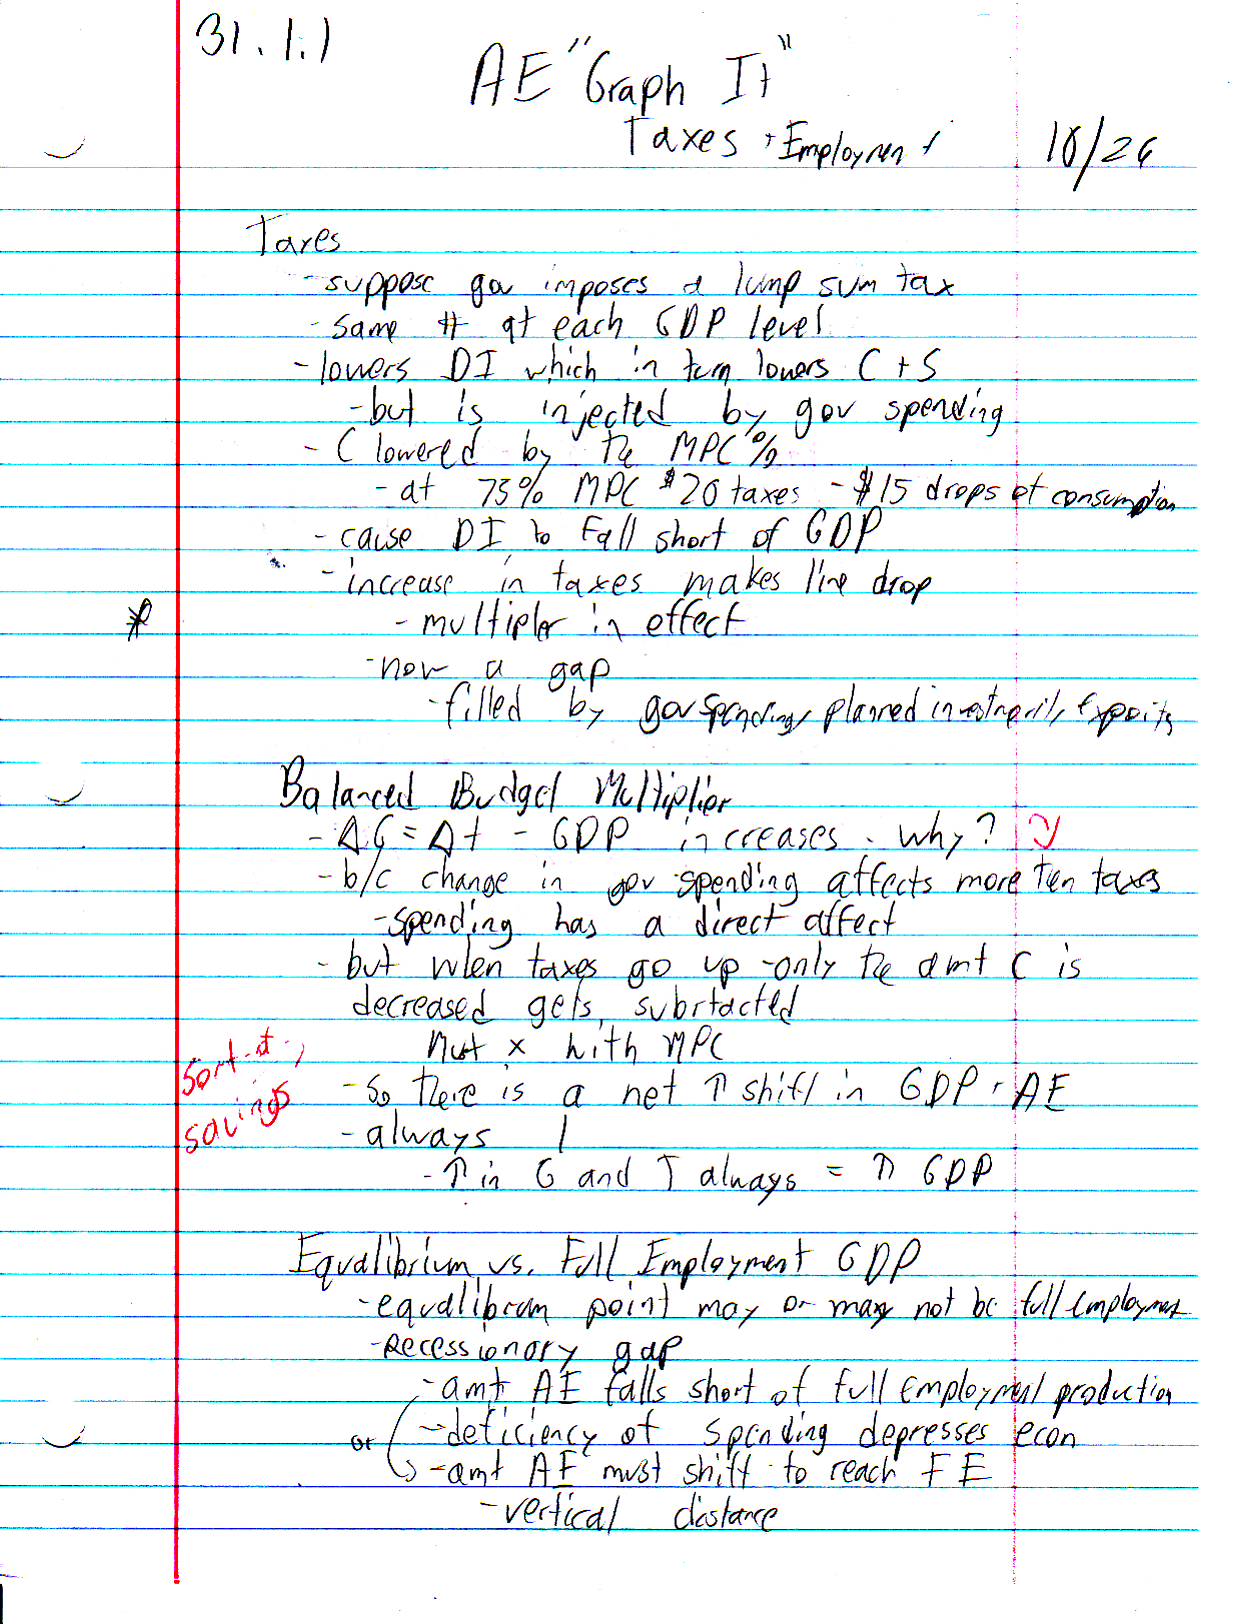 31.1.1
AE "Graph It"
Taxes + Employment 10/26
Taxes
- suppose gov imposes a lump sum tax
- same # at each GDP level
- lowers DI which in turn lowers C + S
- but is injected by gov spending
- C lowered by the MPC %
- at 75% MPC $20 taxes - $15 drops of consumption
- cause DI to fall short of GDP
- increase in taxes makes line drop
* - multipler in effect
- now a gap
- filled by gov spending, planned investments, exports
Balanced Budget Multiplier
- ΔG = Δt - GDP increases. why?
- b/c change in gov spending affects more then taxes
- spending has a direct affect
- but when taxes go up - only the amt C is
decreased gets subrtacted
Must x with MPC
sort-at-,
savings
- so there is a net ↑ shift in GDP + AE
- always 1
- ↑ in G and T always = ↑ GDP
Equalibrium vs. Full Employment GDP
- equalibrum point may or may not be full employment
- Recessionary gap
- amt AE falls short of full employment production
or - deficiency of spending depresses econ
- amt AE must shift to reach FE
- vertical distance